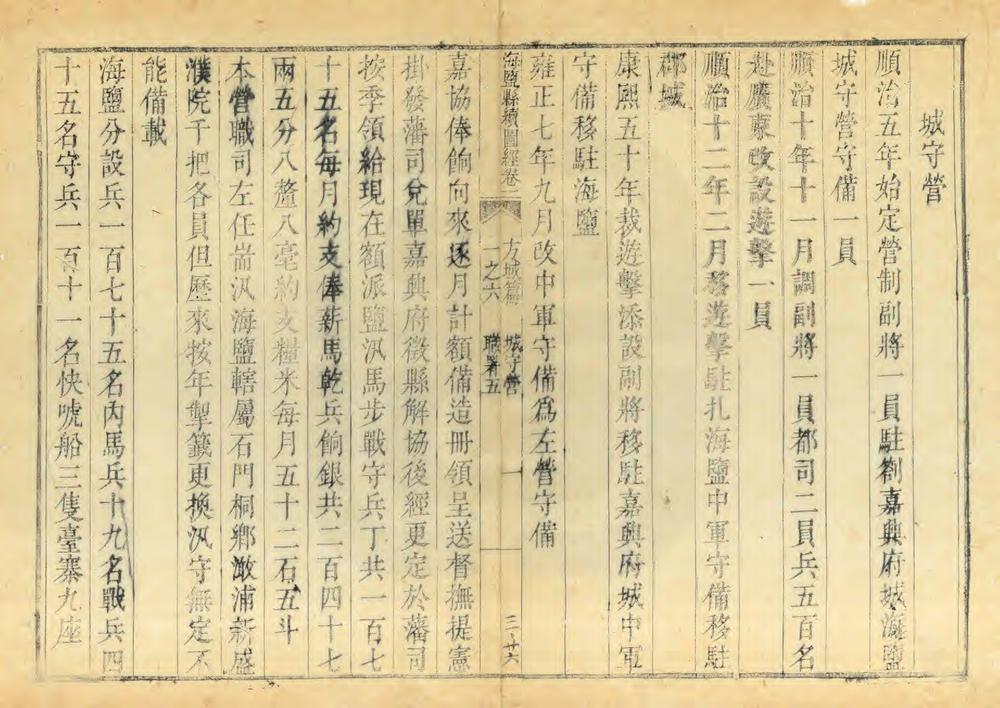 城守營
順治五年始定營制副將一員駐劄嘉興府城海鹽
城守營守備一員
順治十年十一月調副將一員都司二員兵五百名
赴廣東改設遊擊一員
順治十二年二月移遊擊駐扎海鹽中軍守備移駐
郡城
康熙五十年裁遊擊添設副將移駐嘉興府城中軍
守備移駐海鹽
雍正七年九月改中軍守備爲左營守備
海鹽縣續圖經卷二 方域篇 一之六 城守營 職署五 一 三十六
嘉協俸餉向來逐月計額備造冊領呈送督撫提憲
掛發藩司兌單嘉興府徵縣解協後經更定於藩司
按季領給現在額派鹽汛馬步戰守兵丁共一百七
十五名每月約支俸薪馬乾兵餉銀共二百四十七
兩五分八釐八毫約支糧米每月五十二石五斗
本營職司左任崙汛海鹽轄屬石門桐鄉澉浦新盛
濮院千把各員但歷來按年掣籤更換汛守無定不
能備載
海鹽分設兵一百七十五名內馬兵十九名戰兵四
十五名守兵一百十一名快唬船三隻臺寨九座